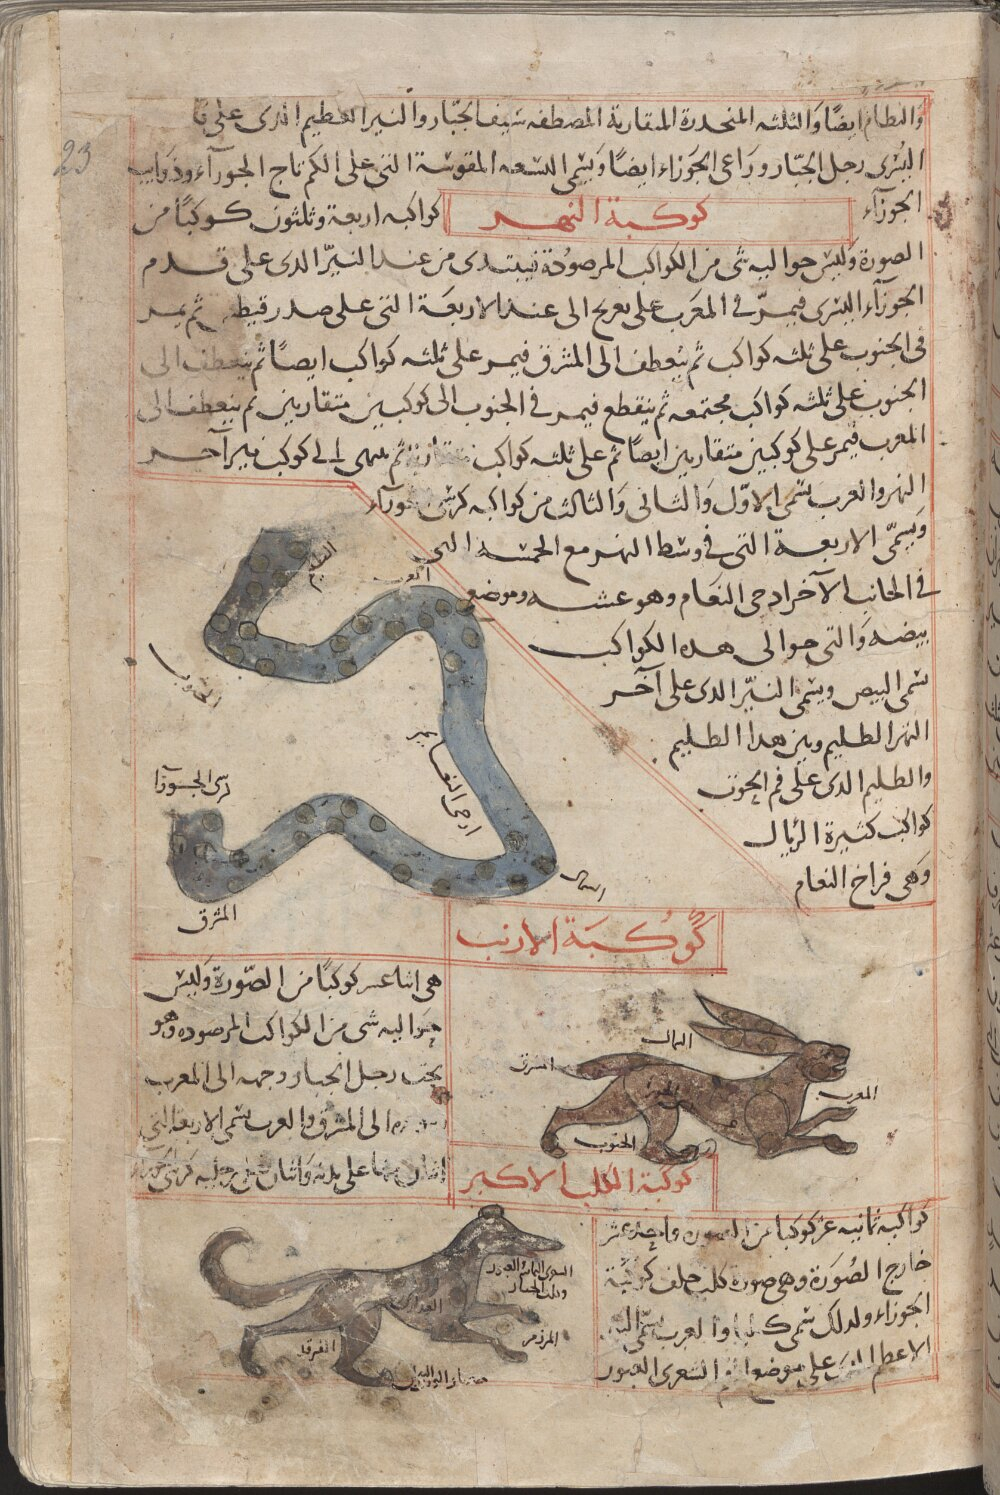 والنطاق ايضًا والثلثه المنحدرة المتقاربة المصطفه سيف الجبّار والنير العظيم الذى على قد
اليُسْرى رجل الجبّار وراعى الجوزاء ايضًا ويسمى التسعه المقوسة التى على الكم تاج الجوزآء وذوايب
الجوزآء
كوكبة النهر
كواكبه اربعة وثلثون كوكبًا من
الصورة وليس حواليه شى من الكواكب المرصودة يبتدى من عند النيّر الذى على قدم
الجوزآء اليسرى فيمرّ فى المغرب على تعريج الى عند الاربعة التى على صدر قيطس ثم يمر
فى الجنوب على ثلثه كواكب ثم ينعطف الى المشرق فيمر على ثلثه كواكب ايضاً ثم ينعطف الى
الجنوب على ثلثه كواكب مجتمعه ثم ينقطع فيمر فى الجنوب الى كوكبين متقاربين ثم ينعطف الى
المغرب فيمر على كوكبين متقاربين ايضاً ثم على ثلثه كواكب متقاربة ثم ينتهى الى كوكب نير آخر
النهر والعرب يسمى الاوّل والثانى والثالث من كواكبه كرسى الجوزآء
ويسمّى الاربعة التى فى وسط النهر مع الخمسه التى
فى الجانب الآخر ادحى النعام وهو عشه وموضع
بيضه والتى حوالى هذه الكواكب
يسمى البيض ويسمى النيّر الذى على آخر
النهر الظليم وبين هذا الظليم
والظليم الذى على فم الحوت
كواكب كثيرة الرئال
وهى فراخ النعام
الظليم
المغرب
الجنوب
ادحى النعام
كرسى الجوزآ
الشمال
المشرق
كوكبة الارنب
هى اثنا عشر كوكبًا من الصّورة وليس
حواليه شى من الكواكب المرصوده وهو
تحت رجل الجبار وجهه الى المغرب
الى المشرق والعرب يسمى الاربعة التى
اثنان منها على يديه واثنان على رجليه كرسى الجوزاء
الشمال
المشرق
المغرب
الجنوب
كوكبة الكلب الاكبر
كواكبه ثمانيه عشر كوكبا من الصورة واحد عشر
خارج الصُورَة وهى صورة كلب خلف كوكبة
الجوزاء ولذلك يسمى كلب والعرب يسمّى النير
الاعظم الذى على موضع الفم الشعرى العبور
العذارى
المرزم
الفرقد
23